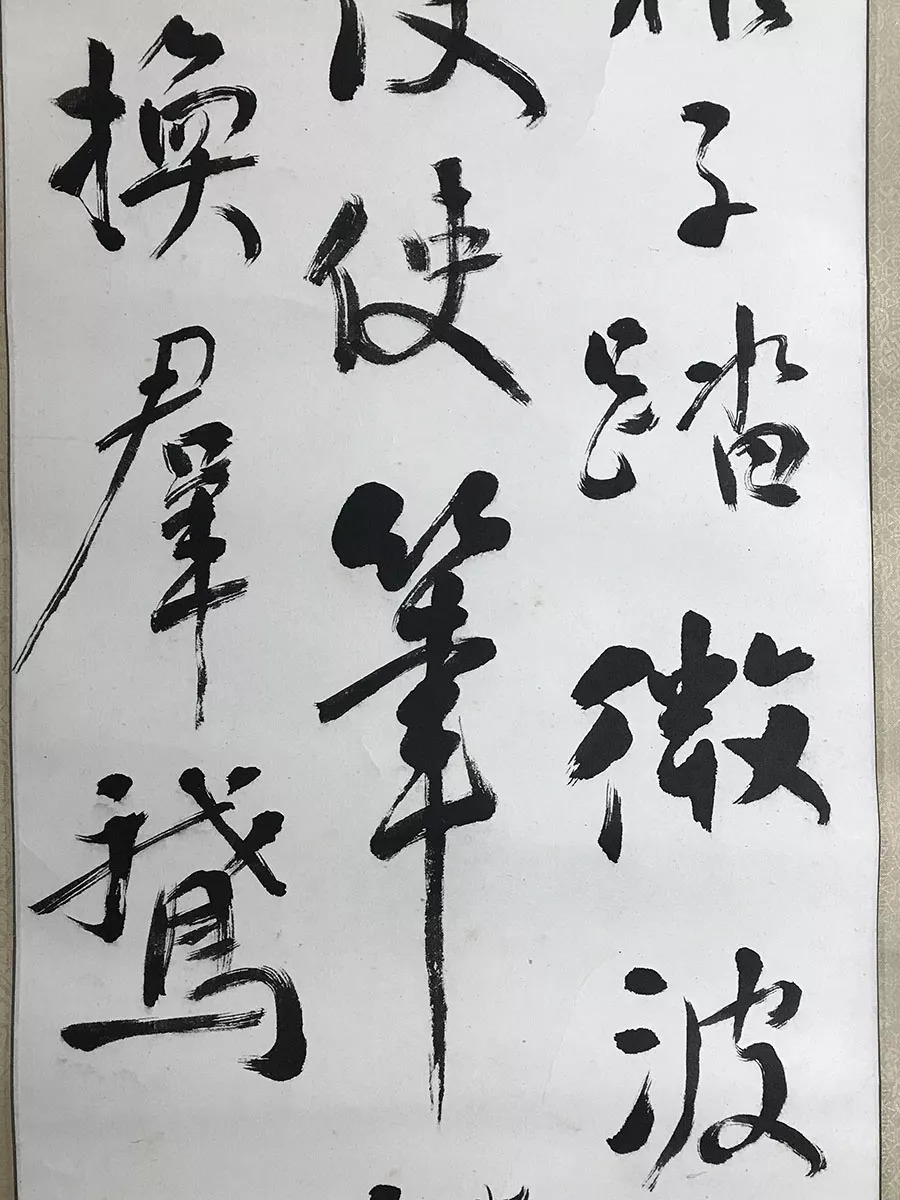 子踏微波
使筆
換羣鵝